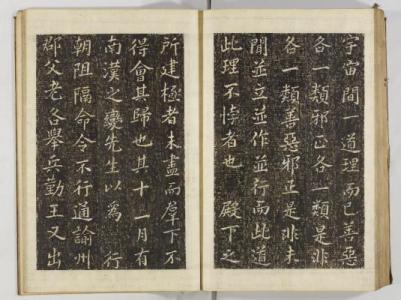 宇宙間一道理而已善惡
各一類邪正各一類是非
各一類善惡邪正是非未
聞並立並作並行而此道
此理不悖者也 殿下之
所建極者未盡而羣下不
得會其歸也其十一月有
南漢之變先生以爲 行
朝阻隔命令不行通諭州
郡父老各擧兵勤王又出